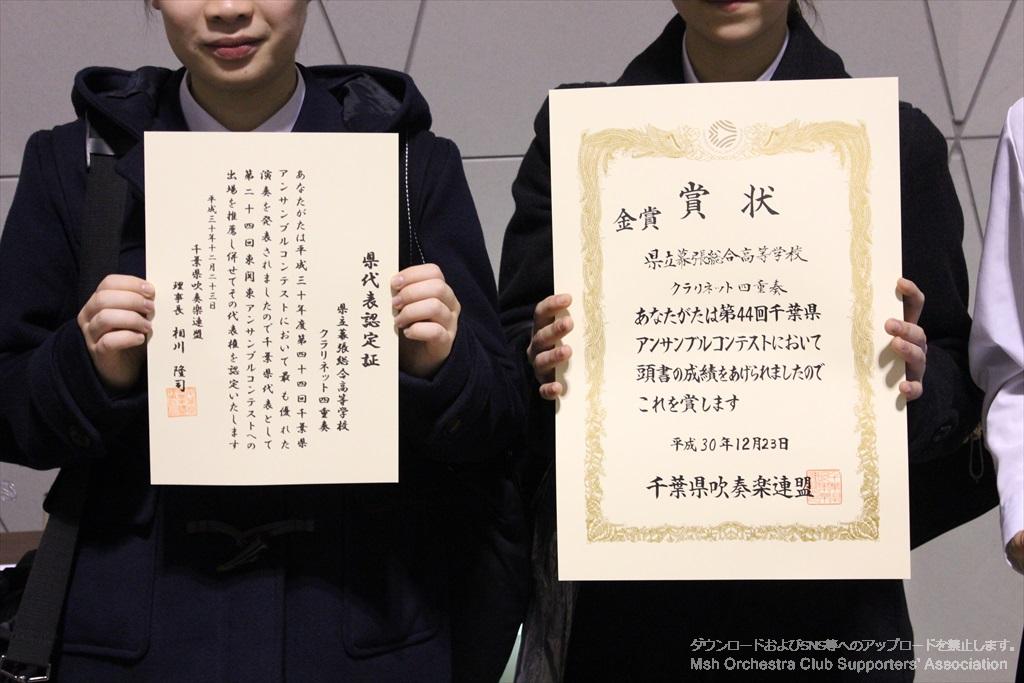 県代表認定証
県立幕張総合高等学校
クラリネット四重奏
あなたがたは平成三十年度第四十四回千葉県
アンサンブルコンテストにおいて最も優れた
演奏を発表されましたので千葉県代表として
第二十四回東関東アンサンブルコンテストへの
出場を推薦し併せてその代表権を認定いたします
平成三十年十二月二十三日
千葉県吹奏楽連盟
理事長 相川 隆司
賞状
金賞
県立幕張総合高等学校
クラリネット四重奏
あなたがたは第44回千葉県
アンサンブルコンテストにおいて
頭書の成績をあげられましたので
これを賞します
平成30年12月23日
千葉県吹奏楽連盟
ダウンロードおよびSNS等へのアップロードを禁止します。
Msh Orchestra Club Supporters' Association